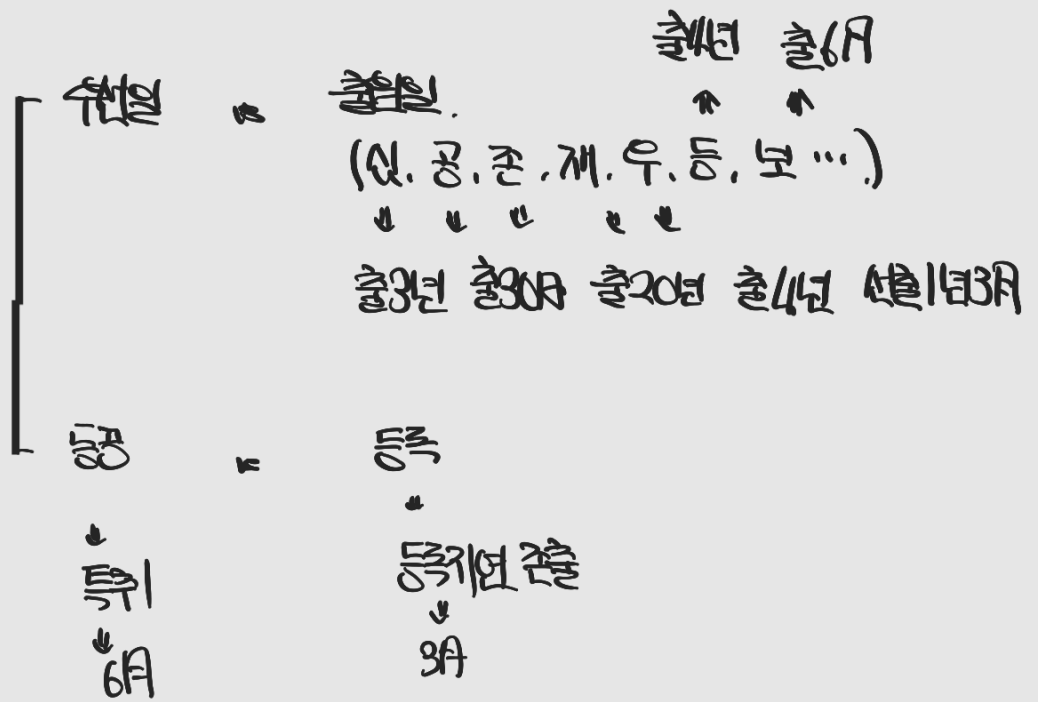 출4년 출6月
우선일 vs 출원일.
(심. 공. 존. 재. 우. 등. 보 ….)
출3년 출30日 출20년 출4년 선출1년3月
등공 vs 등록
특취 등록지연 존출
6月 3月